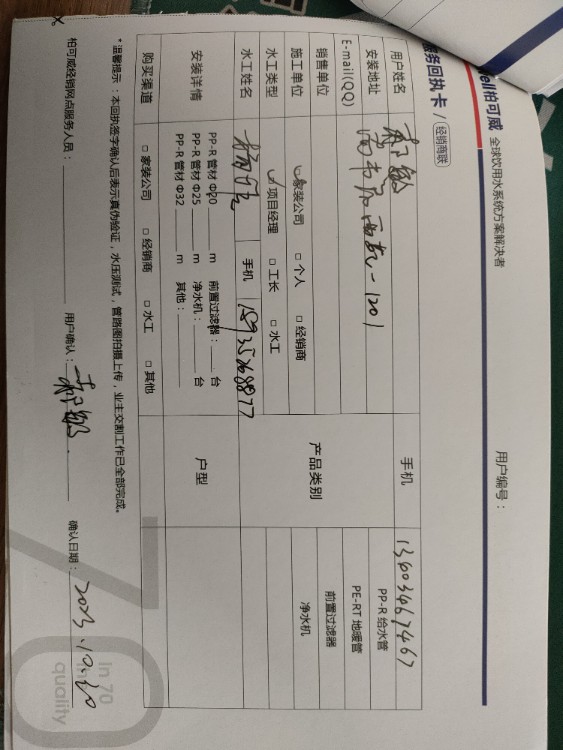 ell柏可威 全球饮用水系统方案解决者
服务回执卡 / 经销商联
用户编号：
用户姓名
手机 13403467467
安装地址 1201
E-mail(QQ)
销售单位
施工单位 ✓家装公司 □ 个人 □ 经销商
水工类型 ✓项目经理 □ 工长 □ 水工
水工姓名 手机 15935268877
产品类别
PP-R 给水管
PE-RT 地暖管
前置过滤器
净水机
安装详情
PP-R 管材 Φ20 m 前置过滤器： 台
PP-R 管材 Φ25 m 净水机： 台
PP-R 管材 Φ32 m 其他：
户型
购买渠道 □ 家装公司 □ 经销商 □ 水工 □ 其他
*温馨提示：本回执签字确认后表示真伪验证，水压测试，管路图拍摄上传，业主交割工作已全部完成。
柏可威经销网点服务人员： 用户确认： 确认日期： 2023.10.20
In 70
quality